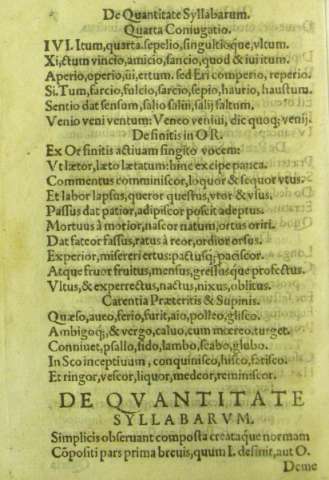 De Quantitate Syllabarum.
Quarta Coniugatio.
IVI. Itum, quarta. sepelio, singultiosque, vltum.
Xi, ctum vincio, amicio, sancio, quod & iui itum.
Aperio, operio, ui, ertum. sed Eri comperio, reperio.
Si. Tum, farcio, fulcio, sarcio, sepio, haurio, haustum.
Sentio dat sensum, salio salui, salij saltum.
Venio veni ventum: Veneo veniui, dic quoq; venij.
Desinitis in OR.
Ex Or finitis actiuam fingito vocem:
Vt lætor, læto lætatum: hinc excipe pauca.
Commentus comminiscor, loquor & sequor vtus.
Et labor lapsus, queror questus, vtor & vsus.
Passus dat patior, adipiscor poscit adeptus.
Mortuus à morior, nascor natum, ortus oriri.
Dat fateor fassus, ratus à reor, ordior orsus.
Experior, misereri ertus: pactusq; paciscor.
Atque fruor fruitus, mensus, gressusque profectus.
Vltus, & experrectus, nactus, nixus, oblitus.
Carentia Præteritis & Supinis.
Quæso, aueo, ferio, furit, aio, polleo, glisco.
Ambigoq;, & vergo, caluo, cum mœreo, turget.
Conniuet, psallo, sido, lambo, scabo, glubo.
In Sco inceptiuum, conquinisco, hisco, fatisco.
Et ringor, vescor, liquor, medeor, reminiscor.
DE QVANTITATE
SYLLABARVM.
Simplicis obseruant composta creataque normam
Cōpositi pars prima breuis, quum I. desinit, aut O.
Deme